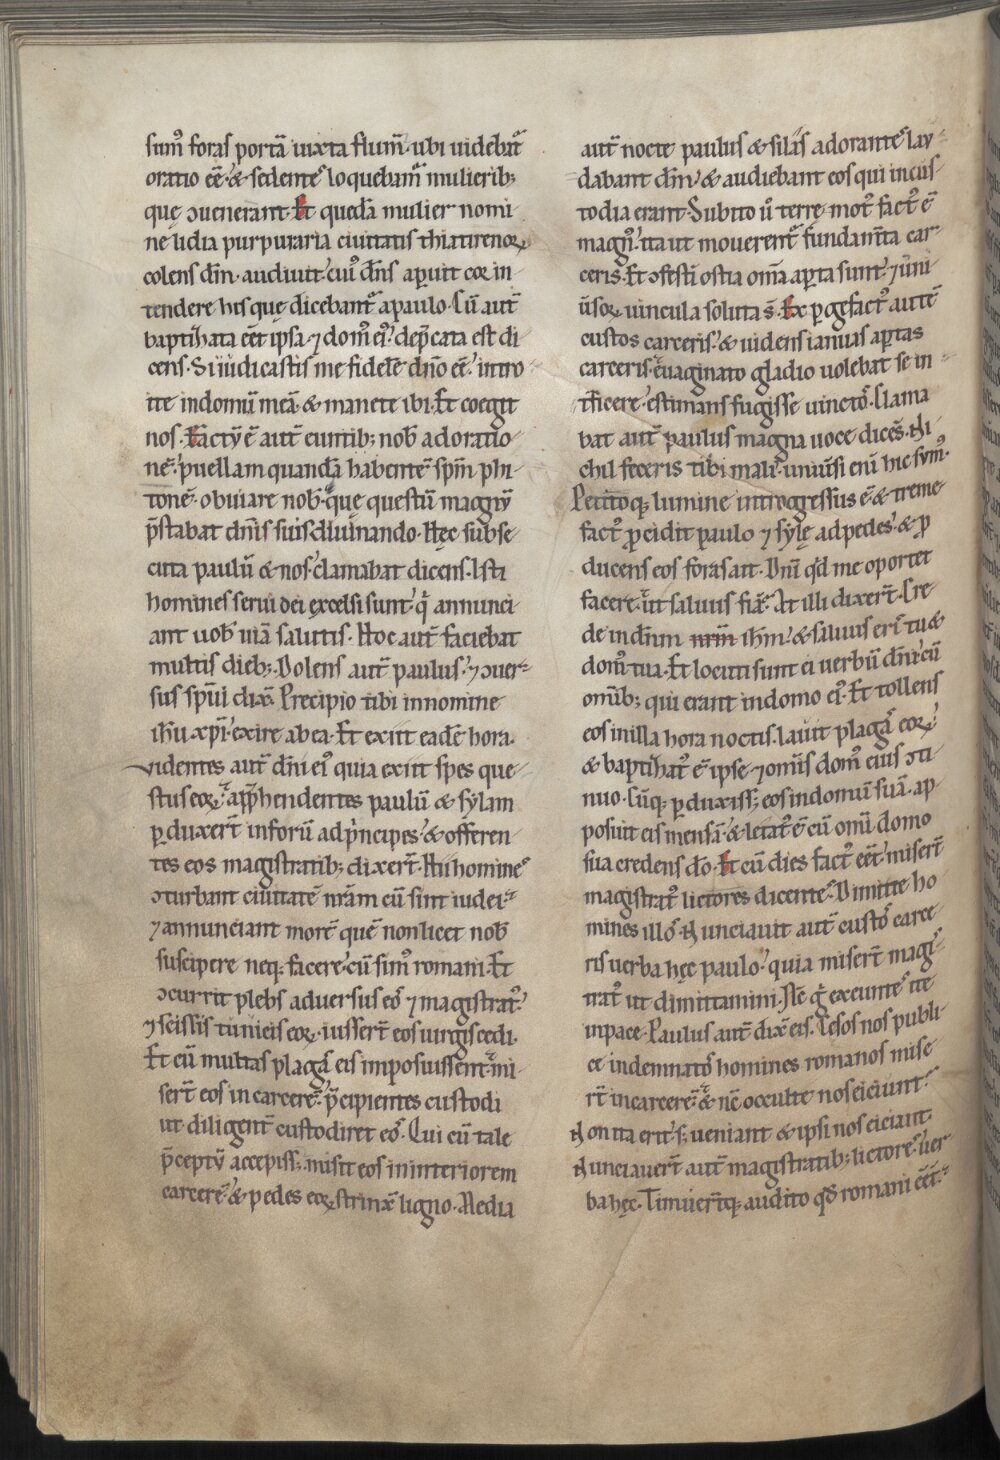 sum᷒ foras portā iuxta flum̄· ubi uidebat᷑
oratio eē· & sedentes loquebam᷑ mulierib;
quę ↄuenerant· Et quedā mulier nomi
ne lidia purpuraria ciuitatis thiatirenoꝝ
colens dm̄· audiuit· cui᷒ dn̄s aperuit cor in
tendere his quę dicebant᷑ a paulo· Cū aut̄
baptizata eēt ipsa ⁊ dom᷒ ei᷒· dep̄cata est di
cens· Si iudicastis me fidelē dn̄o eē· intro
ite in domū meā· & manete ibi· Et coegit
nos· Factū ē aut̄ euntib; nob̄ ad oratio
nē· puellam quandā habentē spm̄ phi
tonē· obuiare nob̄· quę questū magnū
p̄stabat dn̄is suis diuinando· Hęc subse
cuta paulū & nos· clamabat dicens· Isti
homines serui dei excelsi sunt· qͥ annunci
ant uob̄ uiā salutis· Hoc aut̄ faciebat
multis dieb;· Dolens aut̄ paulus· ⁊ ↄuer
sus spūi dix̄· Precipio tibi in nomine
ih̄u xp̄i· exire ab ea· Et exiit eadē hora·
Videntes aut̄ dn̄i ei᷒ quia exiit spes que
stus eoꝝ· app̄hendentes paulū & sylam
ꝑduxer̄t in forū ad p̄ncipes· & offeren
tes eos magistratib; dixer̄t· Hii homines
ↄturbant ciuitatē nr̄am cū sint iudei·
⁊ annunciant morē quē non licet nob̄
suscipere neq; facere· cū sim᷒ romani· Et
ↄcurrit plebs aduersus eos ⁊ magistrat᷒·
⁊ scissis tunicis eoꝝ· iusser̄t eos uirgis cedi·
Et cū multas plagas eis imposuissent· mi
ser̄t eos in carcerē· p̄cipientes custodi
ut diligent̄ custodiret eos· Qui cū tale
p̄ceptū accepiss;· misit eos in interiorem
carcerē· & pedes eoꝝ strinx̄ ligno· Media
aut̄ nocte paulus & silas adorantes lau
dabant dm̄· & audiebant eos qui in cus
todia erant· Subito ū terrę mot᷒ fact᷒ ē
magn᷒· ita ut mouerent᷑ fundam̄ta car
ceris· Et ↄfesti ostia om̄a aꝑta sunt· ⁊ uni
ūsoꝝ uincula soluta s̄· Exꝑgefact᷒ autē
custos carceris· & uidens ianuas aꝑtas
carceris· euaginato gladio uolebat se in
t̄ficere· estimans fugisse uinctos· Clama
bat aut̄ paulus magna uoce dicēs· Ni
chil feceris tibi mali· uniūsi eni hic sum᷒·
Petitoq; lumine introgressus ē· & treme
fact᷒ ꝓcidit paulo ⁊ sylę ad pedes· & ꝓ
ducens eos foras ait· Dn̄i qd̄ me oportet
facere· ut saluus fiā· At illi dixer̄t· Cre
de in dn̄m nr̄m ih̄m· & saluus eris tu &
dom᷒ tua· Et locuti sunt ei uerbū dn̄i cū
om̄ib; qui erant in domo ei᷒· Et tollens
eos in illa hora noctis· lauit plagas eoꝝ·
& baptizat᷒ ē ipse ⁊ om̄is dom᷒ eius ↄti
nuo· Cūq; ꝑduxiss; eos in domū suā· ap
posuit eis mensā· & letat᷒ ē cū omī domo
sua credens do· Et cū dies fact᷒ eēt· miser̄t
magistrat᷒ lictores dicentes· Dimitte ho
mines illos· Nunciauit aut̄ custos carce
ris uerba hęc paulo· quia miser̄t magi
nat᷒ ut dimittamini· Nc̄ gͥ exeuntes ite
in pace· Paulus aut̄ dix̄ eis· Cesos nos publi
ce indemnatos homines romanos mise
r̄t in carcerē· & nc̄ occulte nos eiciunt·
Non ita erit· s; ueniant & ipsi nos eiciant·
Nunciauer̄t aut̄ magistratib; lictores uer
ba hęc· Timuer̄tq; audito qd̄ romani eēt·